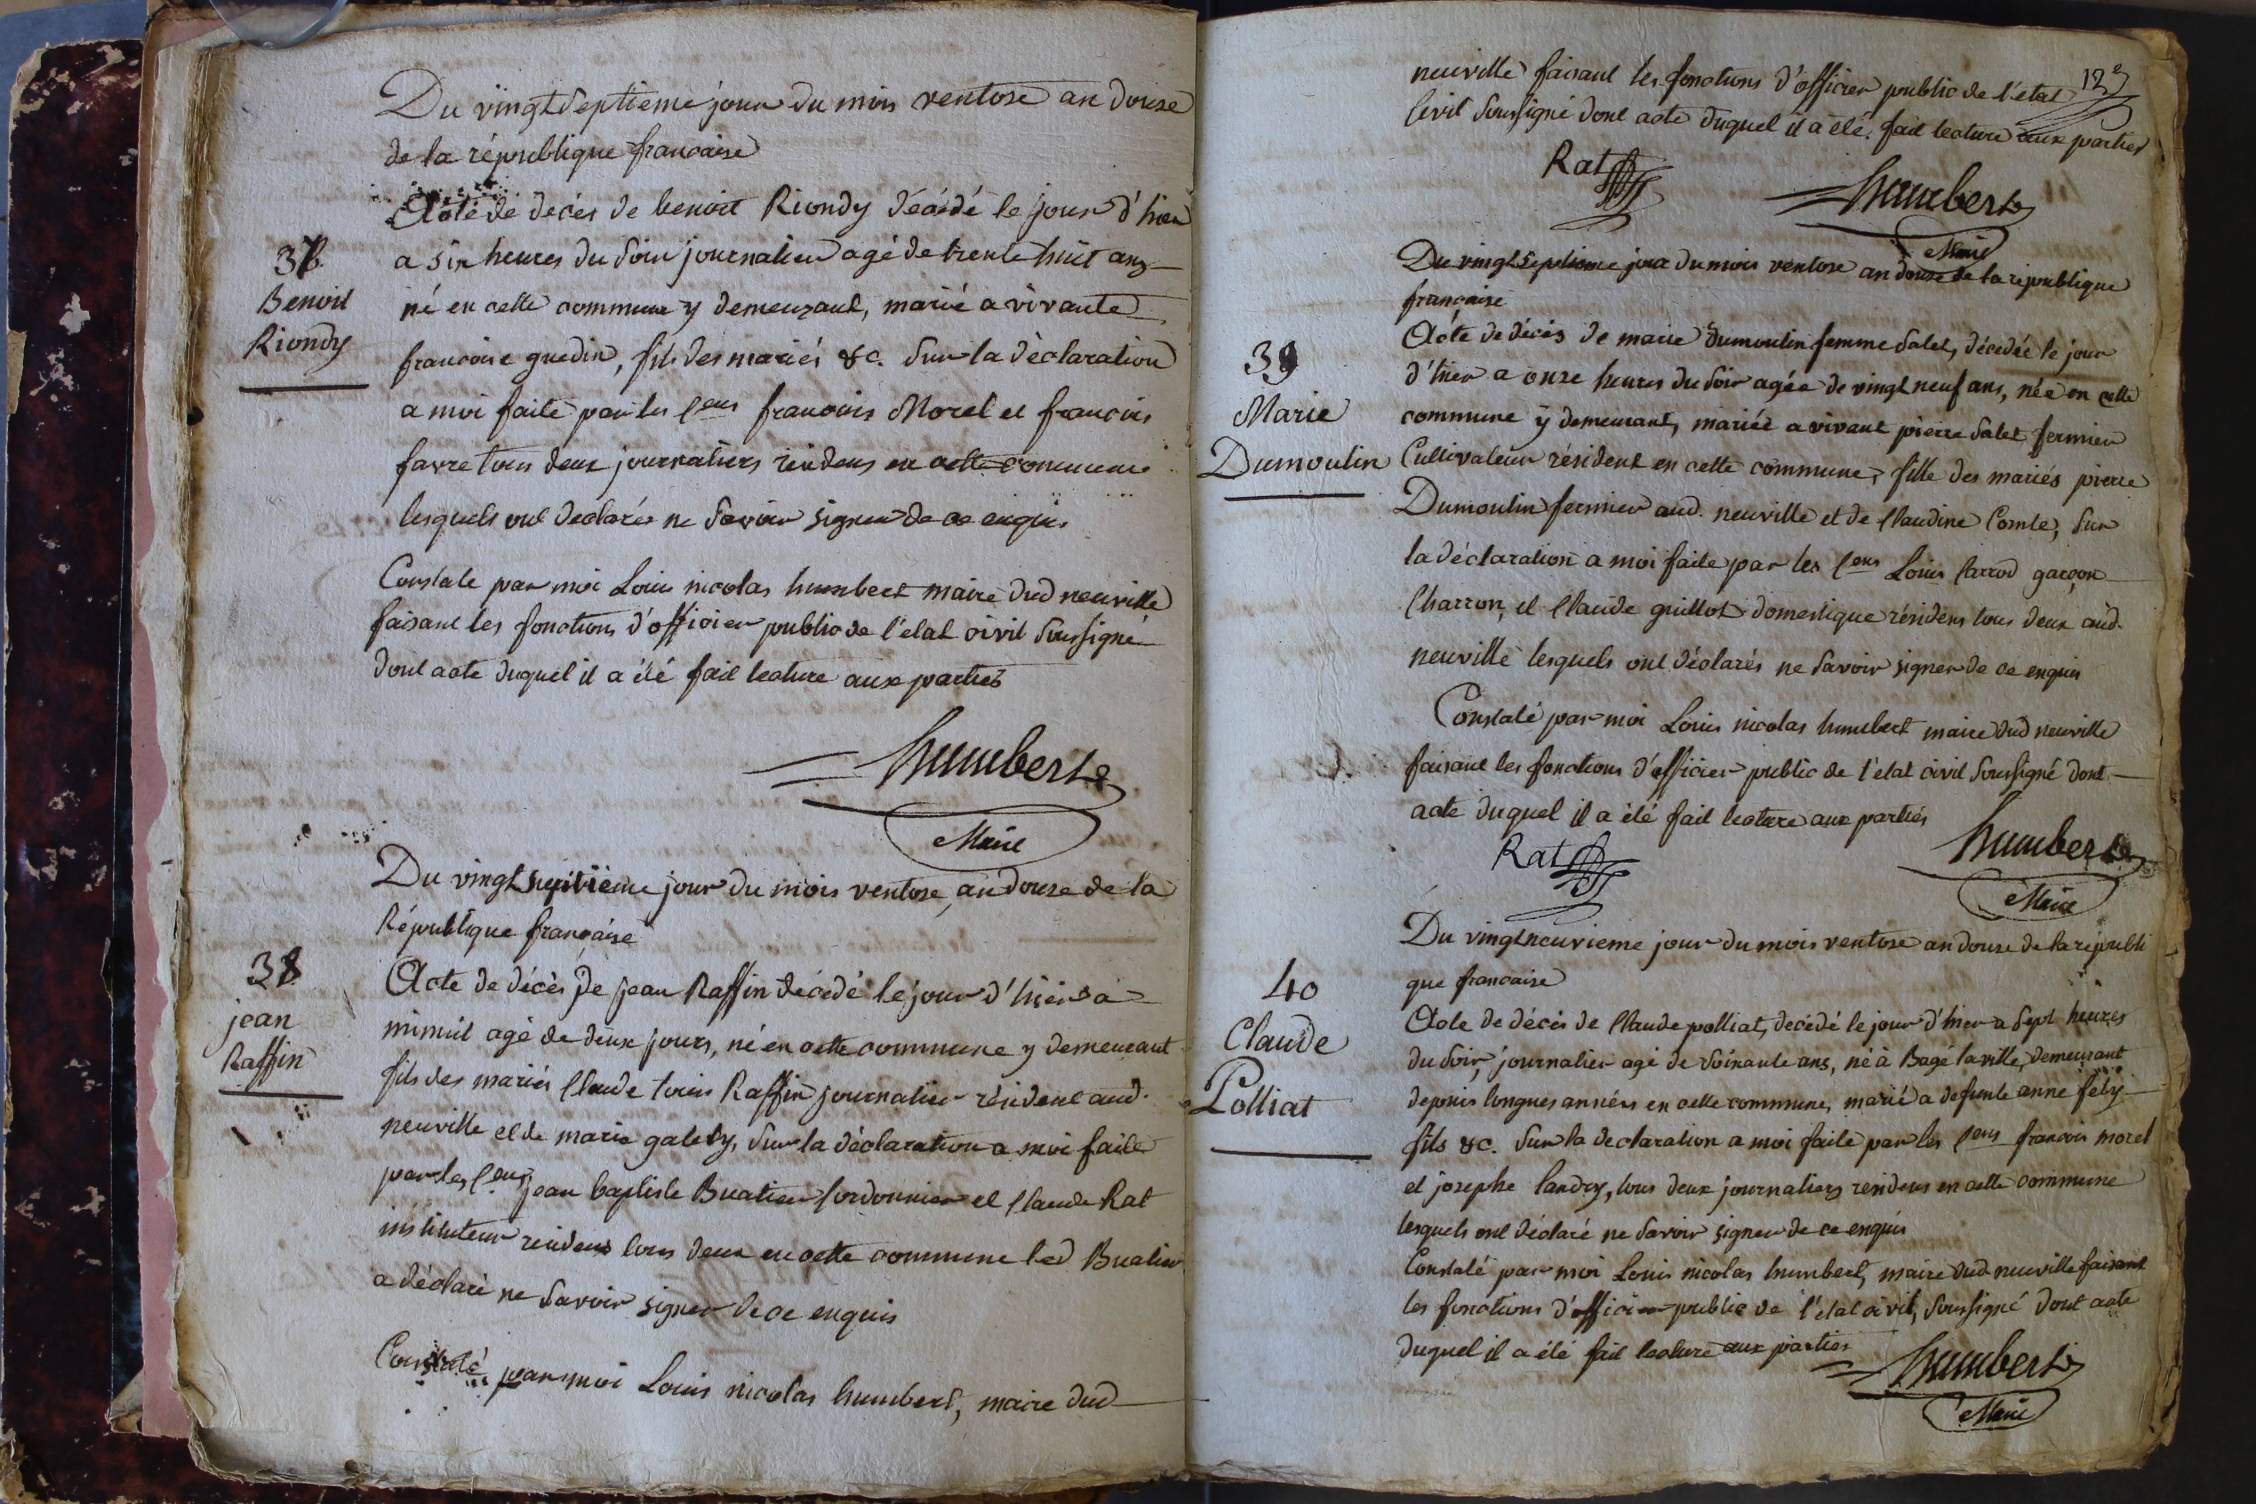 Du vingt Septieme jour du mois ventose an douze
de la république francaise
Acte de decès de benoit Riondy décédé le jour d'hier
37
Benoit
Riondy
a six heures du soir journalier agé de trente huit ans
né en cette commune y demeurant, marié a vivante
francoise guedin, fils des mariés &c. Sur la déclaration
a moi faite par les Cens francois Morel et francois
favre tous deux journaliers résidens en cette commune
lesquels ont déclarés ne Savoir signer de ce enquis
Constaté par moi Louis nicolas humbert maire dud neuville
faisant les fonctions d'officier public de l'etat civil Soussigné
dont acte duquel il a été fait lecture aux parties
humbert
Maire
Du vingt septième jour du mois ventose, an douze de la
République française
38
jean
Raffin
Acte de décès De jean Raffin décédé le jour d'hier a
minuit agé de deux jours, né en cette commune y demeurant
fils des mariés Claude louis Raffin journalier résident aud.
neuville et de marie galety, Sur la déclaration a moi faite
par les Cens jean baptiste Buatier Cordonnier et Claude Rat
instituteur résidens tous deux en cette commune led Buatier
a déclaré ne Savoir signer de ce enquis
Constaté par moi Louis nicolas humbert, maire dud
12e
neuville faisant les fonctions d'officier public de l'etat
Civil Soussigné dont acte duquel il a été fait lecture aux parties
Rat
humbert
Maire
Du vingt septieme jour du mois ventose an douze de la république
française
39
Marie
Dumoulin
Acte de décès de marie Dumoulin femme Salet, décedée le jour
d'hier a onze heures du Soir agée de vingt neuf ans, née en cette
commune y demeurant, mariée a vivant pierre Salet fermier
Cultivateur résident en cette commune, fille des mariés pierre
Dumoulin fermier aud. neuville et de Claudine Comte, Sur
la déclaration a moi faite par les Cens Louis Carrod garçon
Charron, et Claude guillot domestique résidens tous deux aud.
neuville lesquels ont déclarés ne Savoir signer de ce enquis
Constaté par moi Louis nicolas humbert maire dud neuville
faisant les fonctions d'officier public de l'etat civil Soussigné dont
acte duquel il a été fait lecture aux parties
Rat
humbert
Maire
Du vingt neuvieme jour du mois ventose an douze de la républi
que francaise
40
Claude
Polliat
Acte de décès de Claude polliat, decédé le jour d'hier a Sept heures
du Soir, journalier agé de Soixante ans, né à Bagé la ville, demeurant
depuis longues années en cette commune, marié a defunte anne fély
fils &c. Sur la declaration a moi faite par les Cens francois morel
et josephe Landry, tous deux journaliers résidens en cette commune
lesquels ont déclaré ne Savoir signer de ce enquis
Constaté par moi Louis nicolas humbert, maire dud neuville faisant
les fonctions d'officier public de l'etat civil, Soussigné dont acte
duquel il a été fait lecture aux parties
humbert
Maire